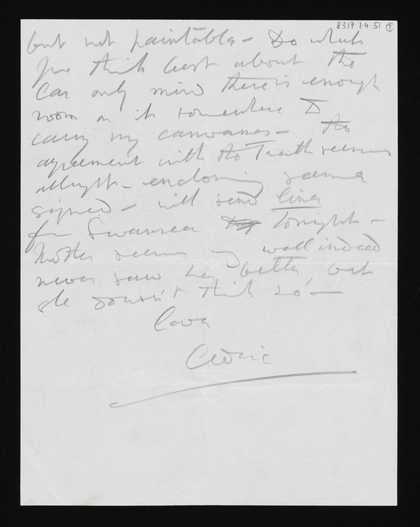 8317.1.4.51 ①
but not paintable – Do what
you think best about the
Car only mind there is enough
room on it somewhere to
carry my canvases – the
agreement with the Tenth seems
allright – enclosing same
signed – will send line
for Swansea tonight –
Mother seems very well indeed
never saw her better but
she doesn't think so –
Love
Cedric